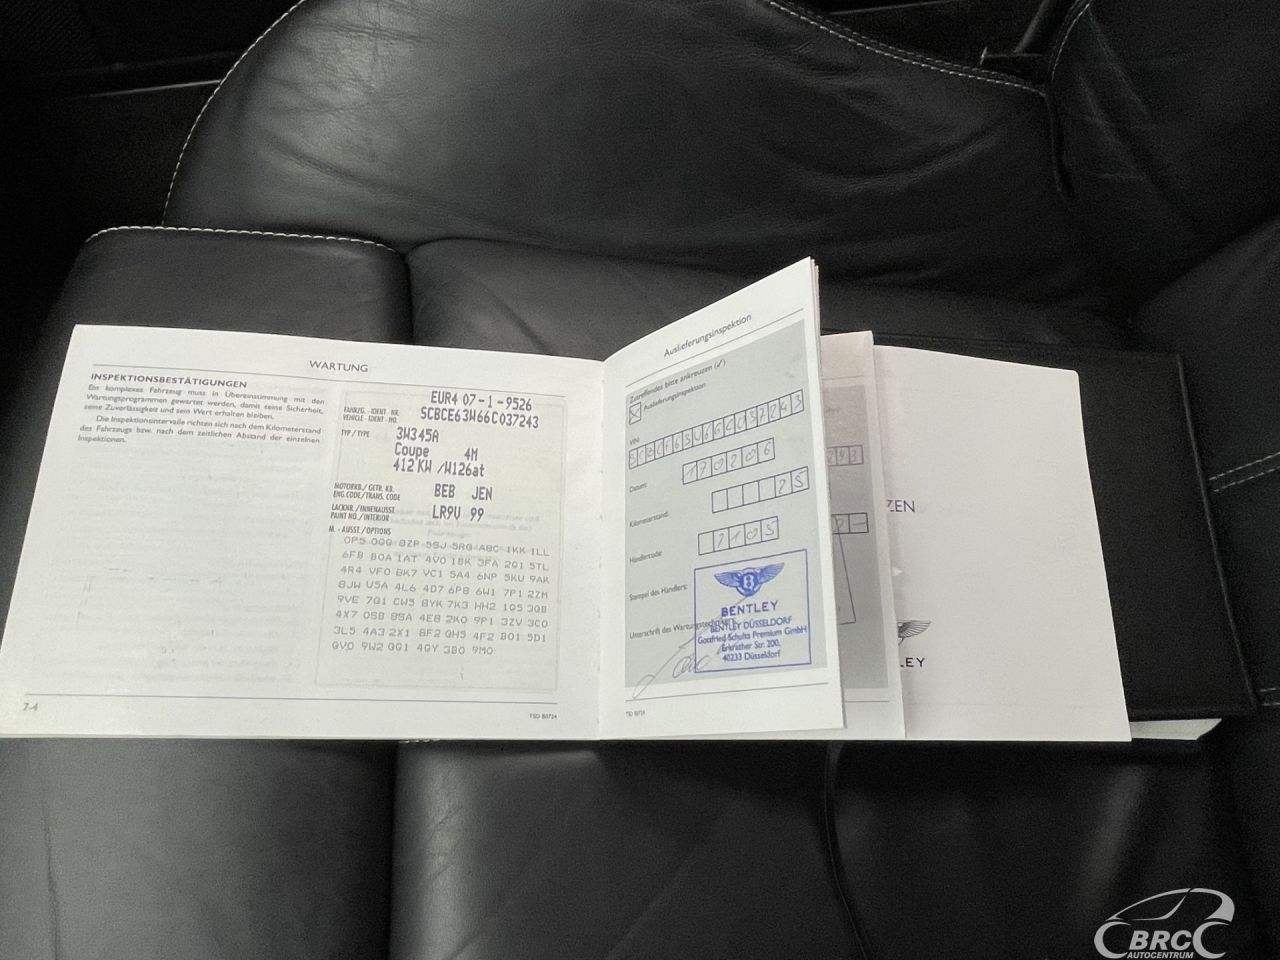 WARTUNG
INSPEKTIONSBESTÄTIGUNGEN
Ein komplexes Fahrzeug muss in Übereinstimmung mit den
Wartungsprogrammen gewartet werden, damit seine Sicherheit,
seine Zuverlässigkeit und sein Wert erhalten bleiben.
Die Inspektionsintervalle richten sich nach dem Kilometerstand
des Fahrzeugs bzw. nach dem zeitlichen Abstand der einzelnen
Inspektionen.
EUR4 07-1-9526
FAHRZG.-IDENT-NR.
VEHICLE-IDENT-NO.
SCBCE63W66C037243
TYP/TYPE
3W345A
Coupe 4M
412 KW /W126at
MOTORKB./GETR.KB.
ENG.CODE/TRANS.CODE
BEB JEN
LACKNR./INNENAUSST.
PAINT NO./INTERIOR
LR9V 99
M.-AUSST./OPTIONS
0P5 0QG 8ZP 5SJ 5RG A8C 1KK 1LL
6FB B0A 1AT 4V0 1BK 3FA 2Q1 5TL
4R4 VF0 8K7 VC1 5A4 6NP 5KU 9AK
8JW U5A 4L6 4D7 6P8 6W1 7P1 2ZM
9VE 7Q1 CW5 8YK 7K3 HH2 1G5 3QB
4X7 0SB 8SA 4E8 2K0 9P1 3ZV 3C0
3L5 4A3 2X1 8F2 QH5 4F2 B01 5D1
QV0 9W2 0G1 4GY 3B0 9M0
7-4
TSD B0724
Auslieferungsinspektion
Zutreffendes bitte ankreuzen (✓)
Auslieferungsinspektion
VIN:
SCBCE63W66C037243
Datum:
170206
Kilometerstand:
25
Händlercode:
2105
Stempel des Händlers:
BENTLEY
BENTLEY DÜSSELDORF
Gottfried Schultz Premium GmbH
Erkrather Str. 200,
40233 Düsseldorf
Unterschrift des Wartungstechnikers:
TSD B0724
ZEN
LEY
BRC
AUTOCENTRUM